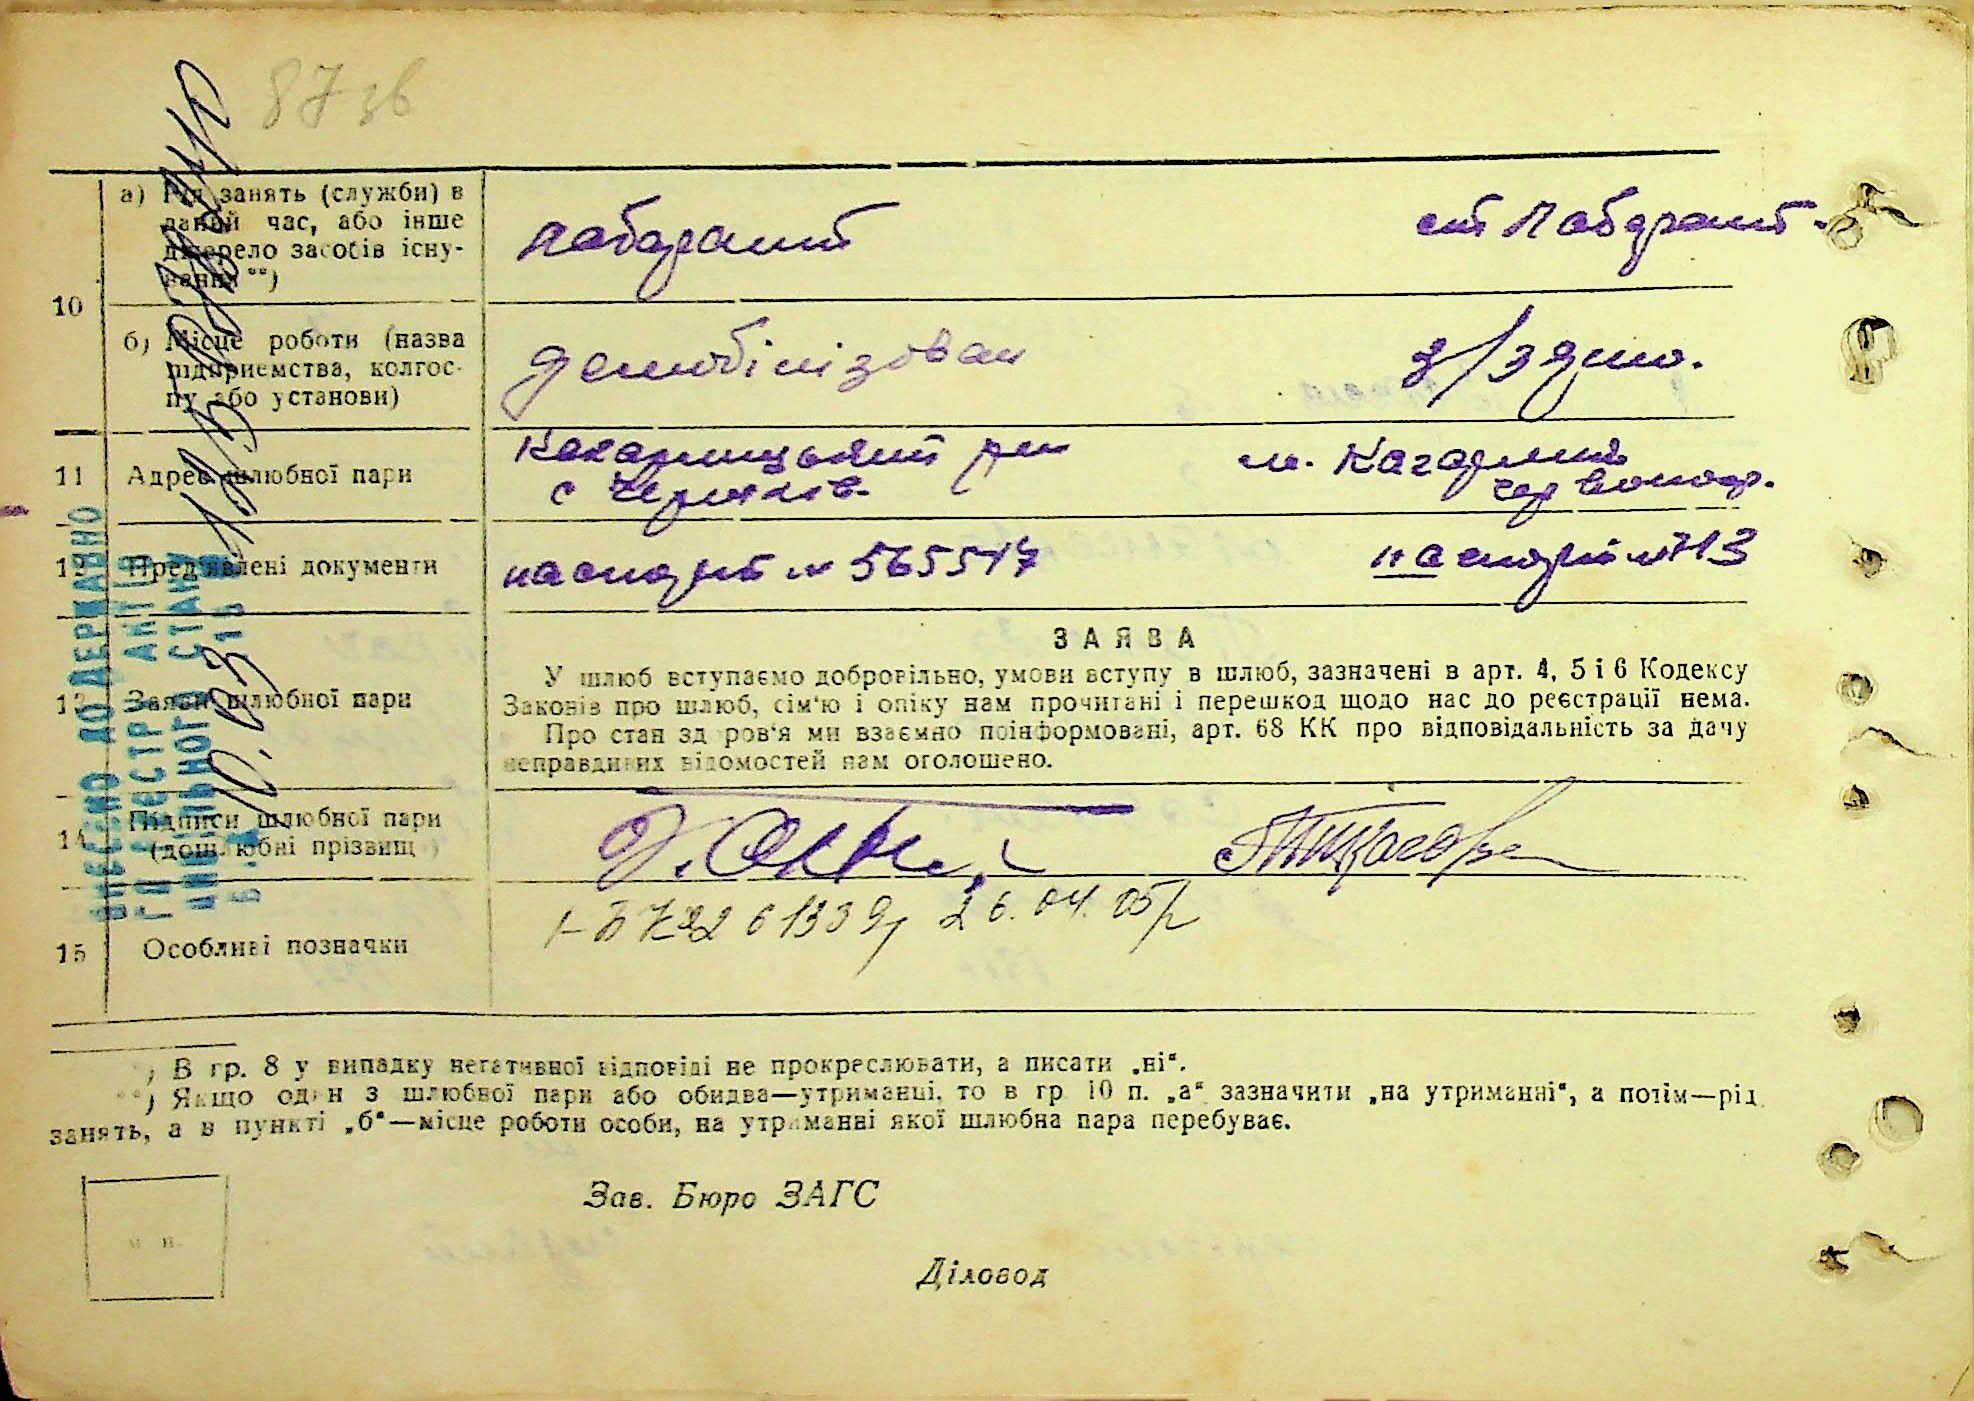 87 зв
10
а) Рід занять (служби) в
даний час, або інше
джерело засобів існу-
вання **)
лаборант
ст лаборант.
б) Місце роботи (назва
підприємства, колгос-
пу або установи)
демобілізован
11
Адрес шлюбної пари
Кагарлицький рн
с
м. Кагарлик
12
Пред'явлені документи
паспорт №
паспорт № 713
13
Заява шлюбної пари
ЗАЯВА
У шлюб вступаємо добровільно, умови вступу в шлюб, зазначені в арт. 4, 5 і 6 Кодексу
Законів про шлюб, сім'ю і опіку нам прочитані і перешкод щодо нас до реєстрації нема.
Про стан здоров'я ми взаємно поінформовані, арт. 68 КК про відповідальність за дачу
неправдивих відомостей нам оголошено.
14
Підписи шлюбної пари
(дошлюбні прізвищ )
15
Особливі позначки
26.04.05р
ВНЕСЕНО ДО ДЕРЖАВНО
ГО РЕЄСТРУ АКТІВ
ЦИВІЛЬНОГО СТАНУ
*) В гр. 8 у випадку негативної відповіді не прокреслювати, а писати „ні“.
**) Якщо один з шлюбної пари або обидва—утриманці, то в гр 10 п. „а“ зазначити „на утриманні“, а потім—рід
занять, а в пункті „б“—місце роботи особи, на утриманні якої шлюбна пара перебуває.
м. п.
Зав. Бюро ЗАГС
Діловод